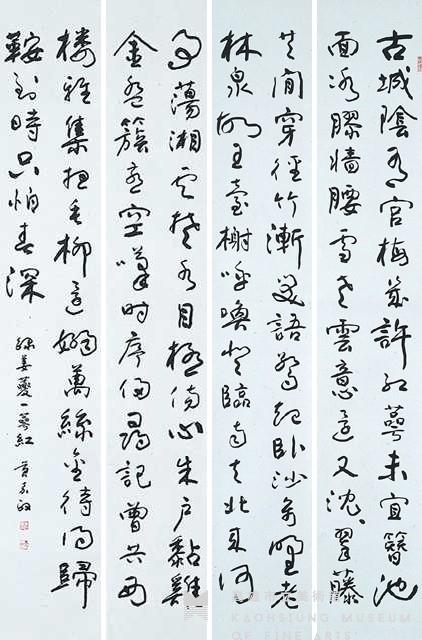 古城陰有官梅幾許紅萼未宜簪池
面冰膠墻腰雪老雲意還又沈沈翠藤
共閒穿徑竹漸笑語驚起臥沙禽野老
林泉故王臺榭呼喚登臨南去北來何
事蕩湘雲楚水目極傷心朱戶黏雞
金盤簇燕空嘆時序侵尋記曾共西
樓雅集想垂柳還嫋萬絲金待得歸
鞍到時只怕春深
錄姜夔一萼紅
高雄市立美術館
KAOHSIUNG
MUSEUM
OF FINE ARTS